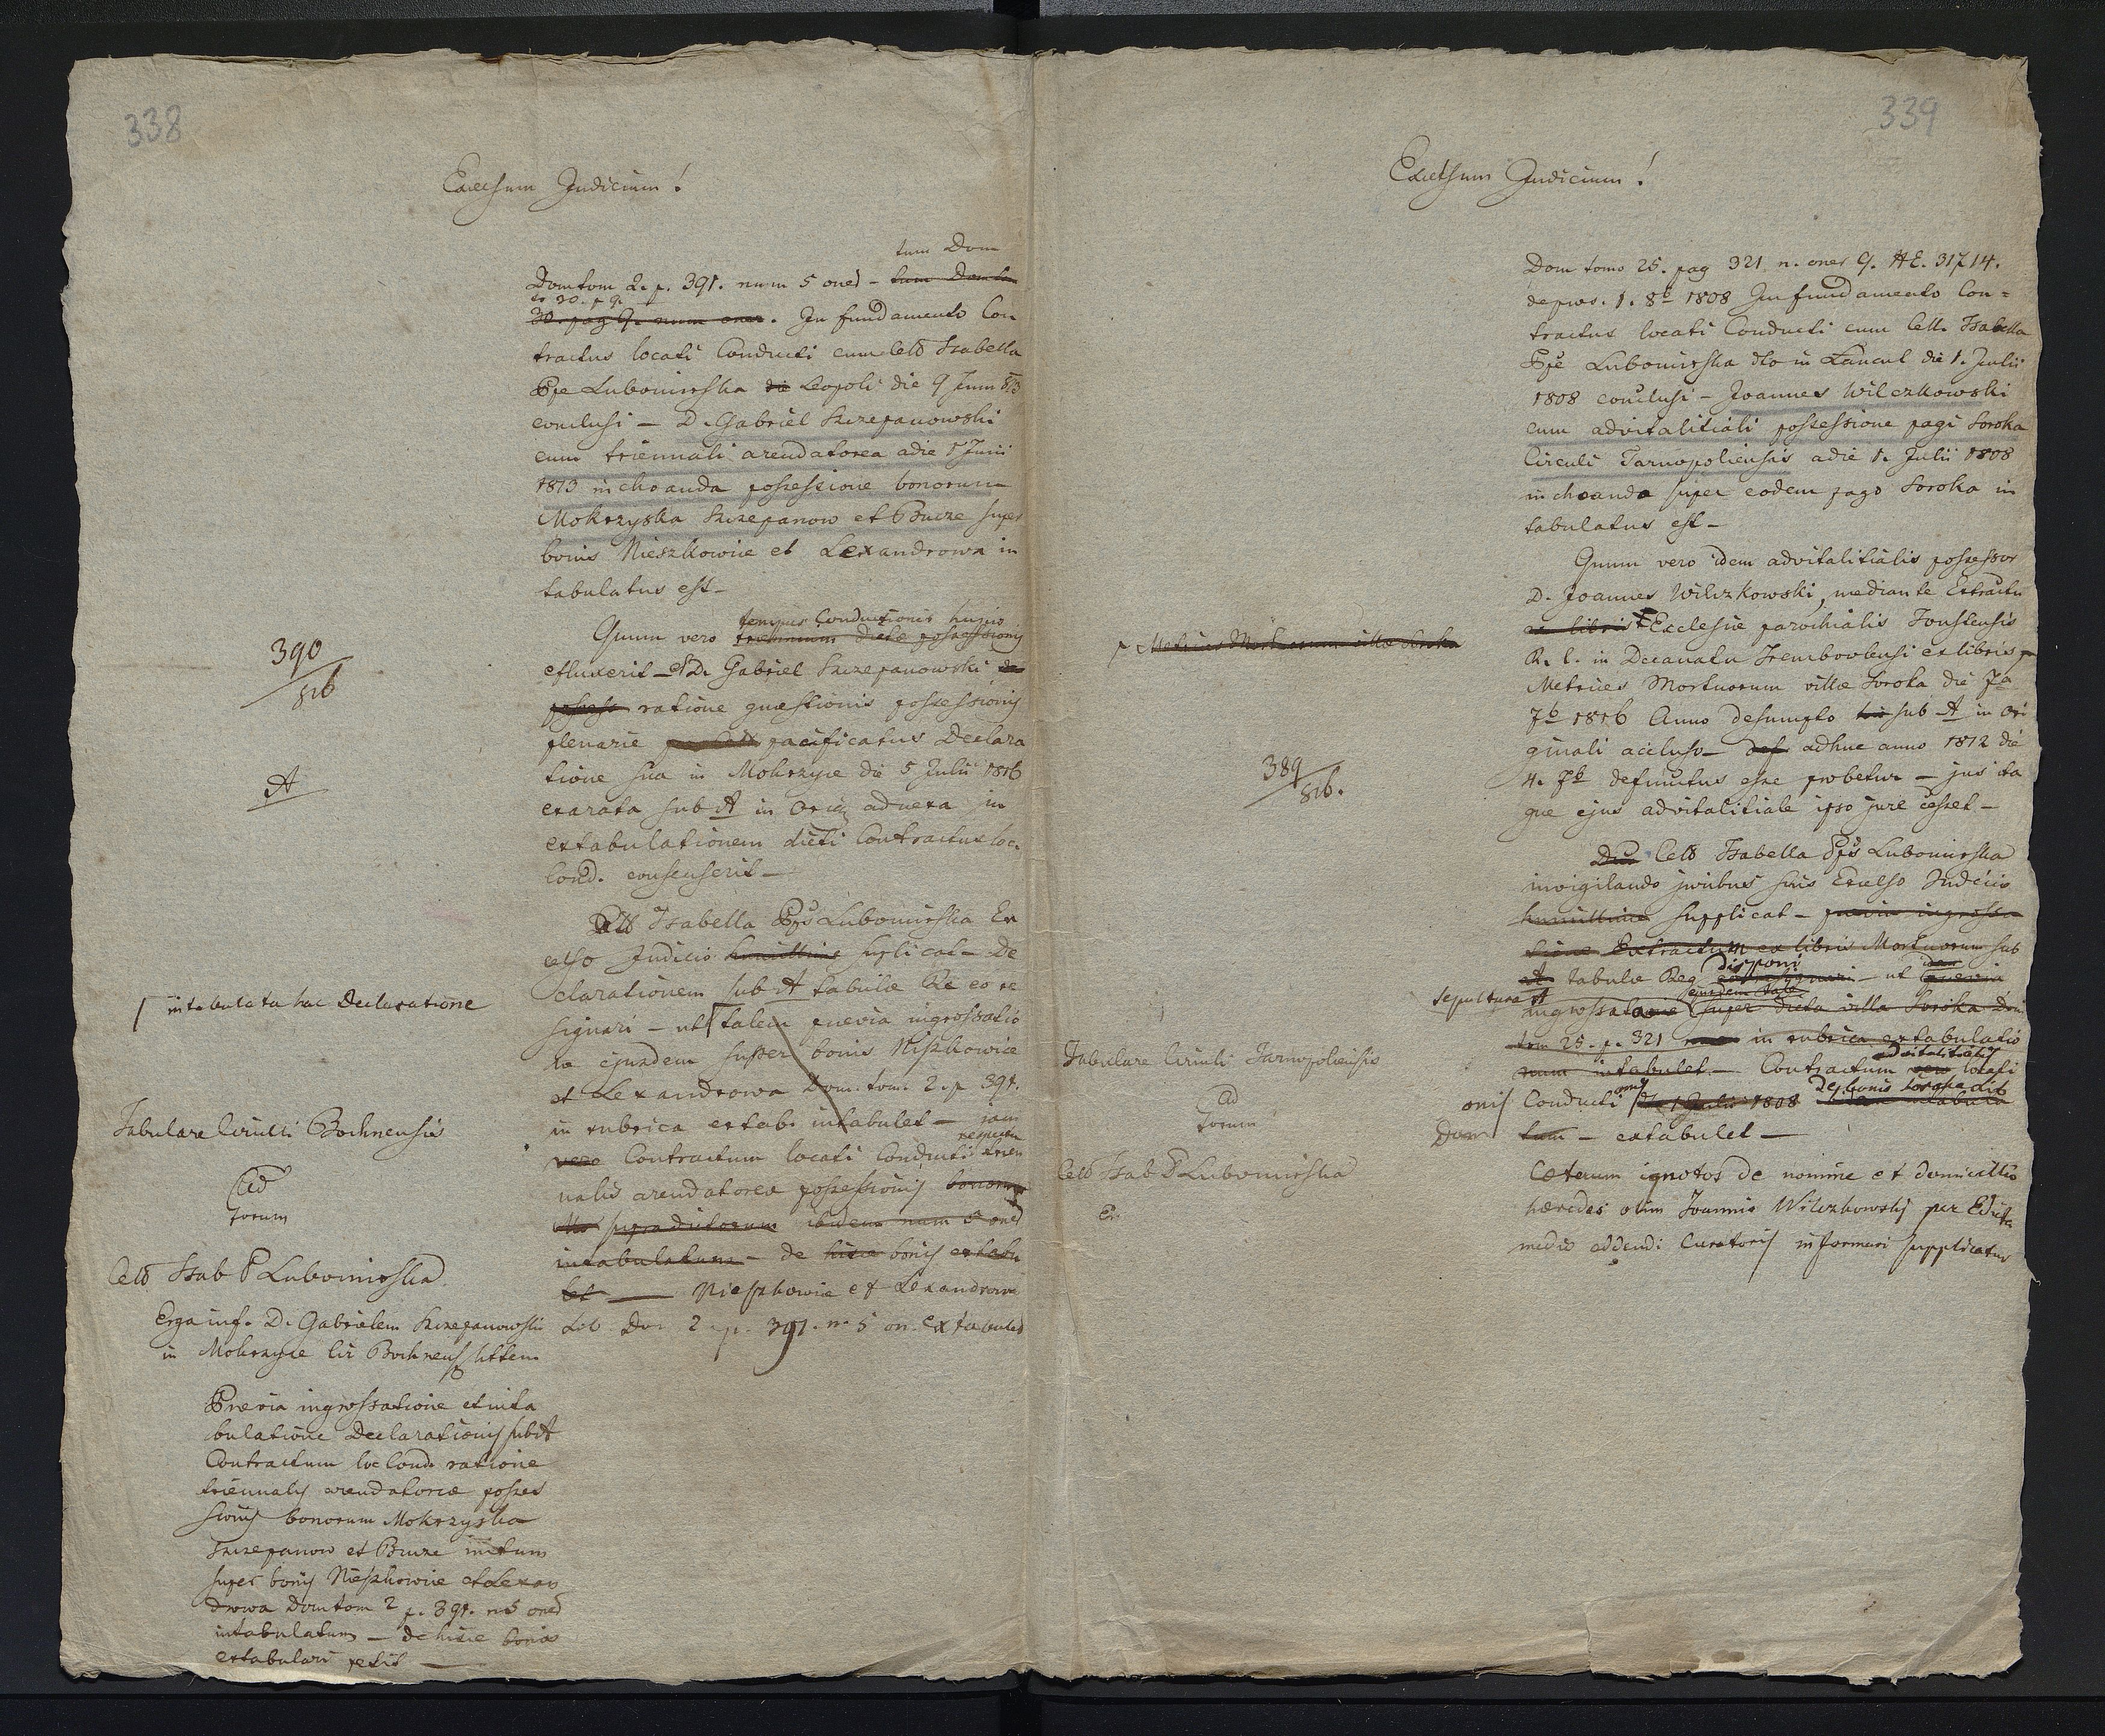 338
Excelsum Judicium!
tum Dom
Dom tom 2. p. 391. num 5 oner – tum Dom tom
to 30. p 9.
30. pag 9. num oner. In fundamento Con
tractus locati Conducti cum Cels Isabella
Ppe Lubomirska die Leopoli die 9 Junii 813
conclusi – D. Gabriel Szczepanowski
cum triennali arendatorea a die 1 Junii
1813 inchoanda possessione bonorum
Mokrzyska Szczepanow et Bucze super
bonis Nieszkowice et Lexandrowa in
tabulatus est –
tempus Conductionis hujus
Quum vero triennium dictae possessionis
effluxerit – et D. Gabriel Szczepanowski de
possess ratione quaestionis possessionis
plenarie pacificatus Declara
tione sua in Mokrzyce die 5 Julii 1816
exarata sub A in Orig adnexa in
extabulationem dicti Contractus loc.
Cond. consenserit –
Cels Isabella Pps Lubomirska Ex
celso Judicio humillime suplicat – De
clarationem sub A tabulae Re eo re
signari – ut talem praevia ingrossatio
ne ejusdem super bonis Niszkowice
et Lexandrowa Dom. tom. 2. p 391.
in rubrica extab. intabulet – jam
respectu
vero Contractum locati Conducti trien
nalis arendatorea possessionis bonorum
supradictorum ibidem num 5 oner
intabulatum – de hisce bonis extabu
let — Nieszkowice et Lexandrowa
Lib Dom 2 p. 391. n. 5 on. extabulet
390
816
A
intabulata hac Declaratione
Tabulare Circuli Bochnensis
Ad
Forum
Cels Isab P Lubomirska
Erga inf. D. Gabrielem Szczepanowski
in Mokrzyce Cir Bochnens sittem
Praevia ingrossatione et inta
bulatione Declarationis sub A
Contractum loc Cond ratione
triennalis arendatorea posses
sionis bonorum Mokrzyska
Szczepanow et Bucze initum
super bonis Nieszkowice et Lexan
drowa Dom tom 2 p. 391. n 5 oner
intabulatum – de hisce bonis
extabulari petit —
339
Excelsum Judicium!
Dom tomo 25. pag 321 n. oner 9. HE. 31714.
de pres. 1. 8b 1808 In fundamento Con =
tractus locati Conducti cum Cels. Isabella
Ppe Lubomirska dto in Lancut die 1. Julii
1808 conclusi – Joannes Wilczkowski
cum advitalitiali possessione pagi Soroka
Circuli Tarnopoliensis a die 1. Julii 1808
inchoanda super eodem pago Soroka in
tabulatus est –
Quum vero idem advitalitialis possessor
D. Joannes Wilczkowski, mediante Extractu
ex libris Ecclesiae parochialis Toustensis
R. l. in Decanatu Trembovlensi ex libris
Metrices Mortuorum villae Soroka die 7a
7b 1816 Anno desumpto sub A in Ori
ginali accluso – def adhuc anno 1812 die
4. 7b defunctus esse probetur – jus ita
que ejus advitalitiale ipso jure cesset –
Cels Isabella Pps Lubomirska
invigilando juribus suis Excelso Judicio
humillime supplicat – praevia ingrossa
tione Extractum ex libris Mortuorum sub
disponi
A tabulae Reg – ut praevia
ejusdem
ingrossatione super dicta villa Soroka Dom
tom 25. p. 321 in rubrica extabulatio
advitalitialis
num intabulet – Contractum vero locati
de bonis Soroka Lib
Conducti de 1 Julii 1808
tum – extabulet —
Caeterum ignotos de nomine et domicilio
haeredes olim Joannis Wilczkowski per Edicta
medio addendi Curatoris informari supplicatur
Metrices Mortuorum villae Soroka
389
816.
sepulturae
onis
Dom
Tabulare Circuli Tarnopoliensis
Ad
Forum
Cels Isab P Lubomirska
Ex